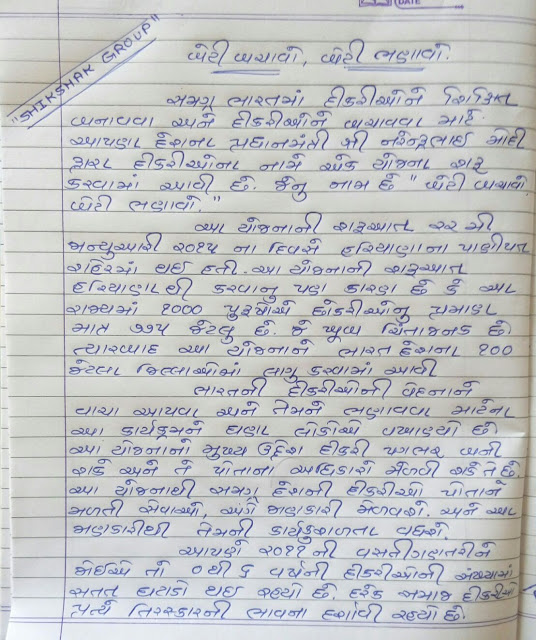 "SHIKSHAK GROUP"
DATE
બેટી બચાવો, બેટી ભણાવો.
સમગ્ર ભારતમાં દીકરીઓને શિક્ષિત
બનાવવા અને દીકરીઓને બચાવવા માટે
આપણા દેશના પ્રધાનમંત્રી શ્રી નરેન્દ્રભાઇ મોદી
દ્વારા દીકરીઓના નામે એક યોજના શરૂ
કરવામાં આવી છે. જેનુ નામ છે "બેટી બચાવો
બેટી ભણાવો."
આ યોજનાની શરૂઆત ૨૨ મી
જાન્યુઆરી ૨૦૧૫ ના દિવસે હરિયાણાના પાણીપત
શહેરમાં થઇ હતી. આ યોજનાની શરૂઆત
હરિયાણાથી કરવાનુ પણ કારણ છે કે આ
રાજ્યમાં ૧૦૦૦ પુરૂષોએ છોકરીઓનુ પ્રમાણ
માત્ર ૭૭૫ જેટલુ છે. જે ખૂબ ચિંતાજનક છે.
ત્યારબાદ આ યોજનાને ભારત દેશના ૧૦૦
જેટલા જિલ્લાઓમાં લાગુ કરવામાં આવી
ભારતની દીકરીઓની વેદનાને
વાચા આપવા અને તેમને ભણાવવા માટેના
આ કાર્યક્રમને ઘણા લોકોએ વખાણ્યો છે
આ યોજનાનો મુખ્ય ઉદ્દેશ દીકરી પગભર બની
શકે અને તે પોતાના અધિકારો મેળવી શકે તે છે.
આ યોજનાથી સમગ્ર દેશની દીકરીઓ પોતાને
મળતી સેવાઓ, અંગે જાણકારી મેળવશે. અને આ
જાણકારીથી તેમની કાર્યકુશળતા વધશે.
આપણે ૨૦૧૧ ની વસતીગણતરીને
જોઇએ તો ૦ થી ૬ વર્ષની દીકરીઓની સંખ્યામાં
સતત ઘટાડો થઇ રહ્યો છે. દરેક સમાજ દીકરીઓ
પ્રત્યે તિરસ્કારની ભાવના દર્શાવી રહ્યો છે.